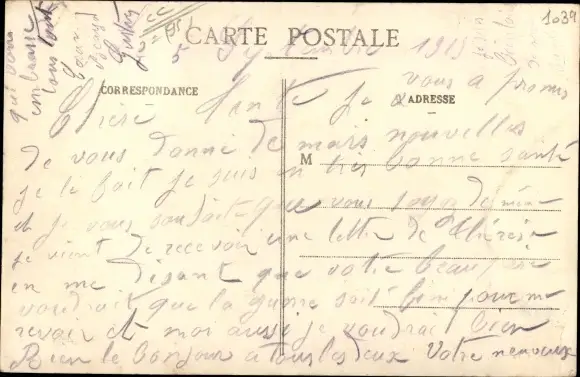 1039
CARTE POSTALE
5 Septembre 1915
CORRESPONDANCE
ADRESSE
M
Chère Tante Je vous a promis
de vous donné de mais nouvelles
je le fait je suis en très bonne santé
et je vous souhait que vous soya de même
je vient de recevoir une lettre de Thérèse
en me disant que votre beau
voudrait que la guerre soit fini pour me
revoir et moi aussi je voudrait bien
Bien le bonjour a tous les deux Votre neveux
qui vous
embrasse
tous
Gustave